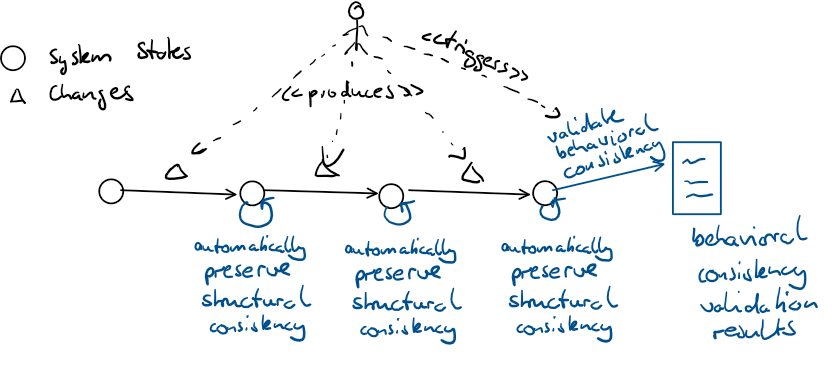 System States
Changes
<<triggers>>
<<produces>>
validate
behavioral
consistency
automatically
preserve
structural
consistency
automatically
preserve
structural
consistency
automatically
preserve
structural
consistency
behavioral
consistency
validation
results